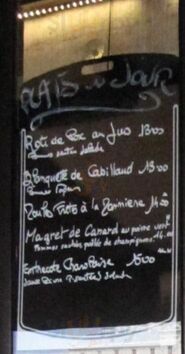 PLATS du JOUR
Roti de Porc au Jus 13€00
Pommes sautées Salade
Blanquette de Cabillaud 13€00
Pommes Vapeur
Moules Frites à la Marinière 14€00
Magret de Canard au poivre vert
Pommes sautées poêlée de champignons 14€00
Entrecote Charolaise 15€00
Sauce Poivre Salade